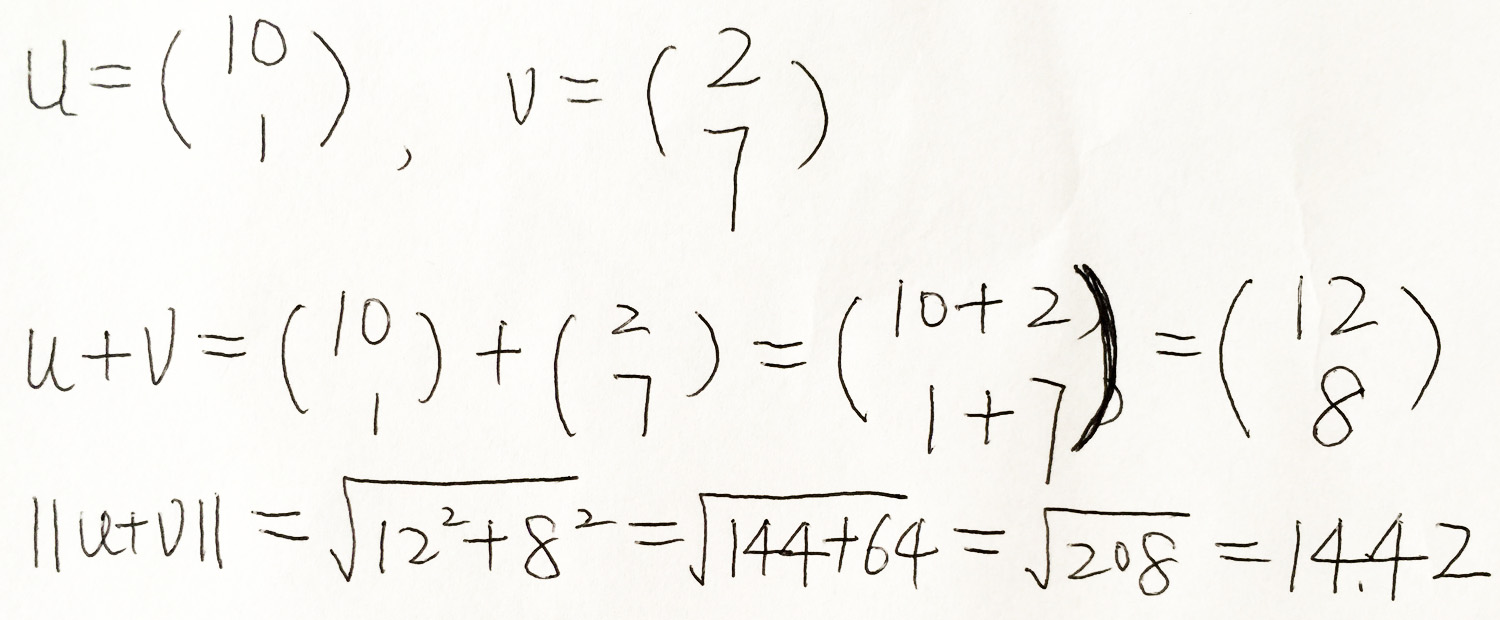 u = (10 1), v = (2 7)
u+v = (10 1) + (2 7) = (10+2 1+7) = (12 8)
||u+v|| = √(12²+8²) = √(144+64) = √208 = 14.42